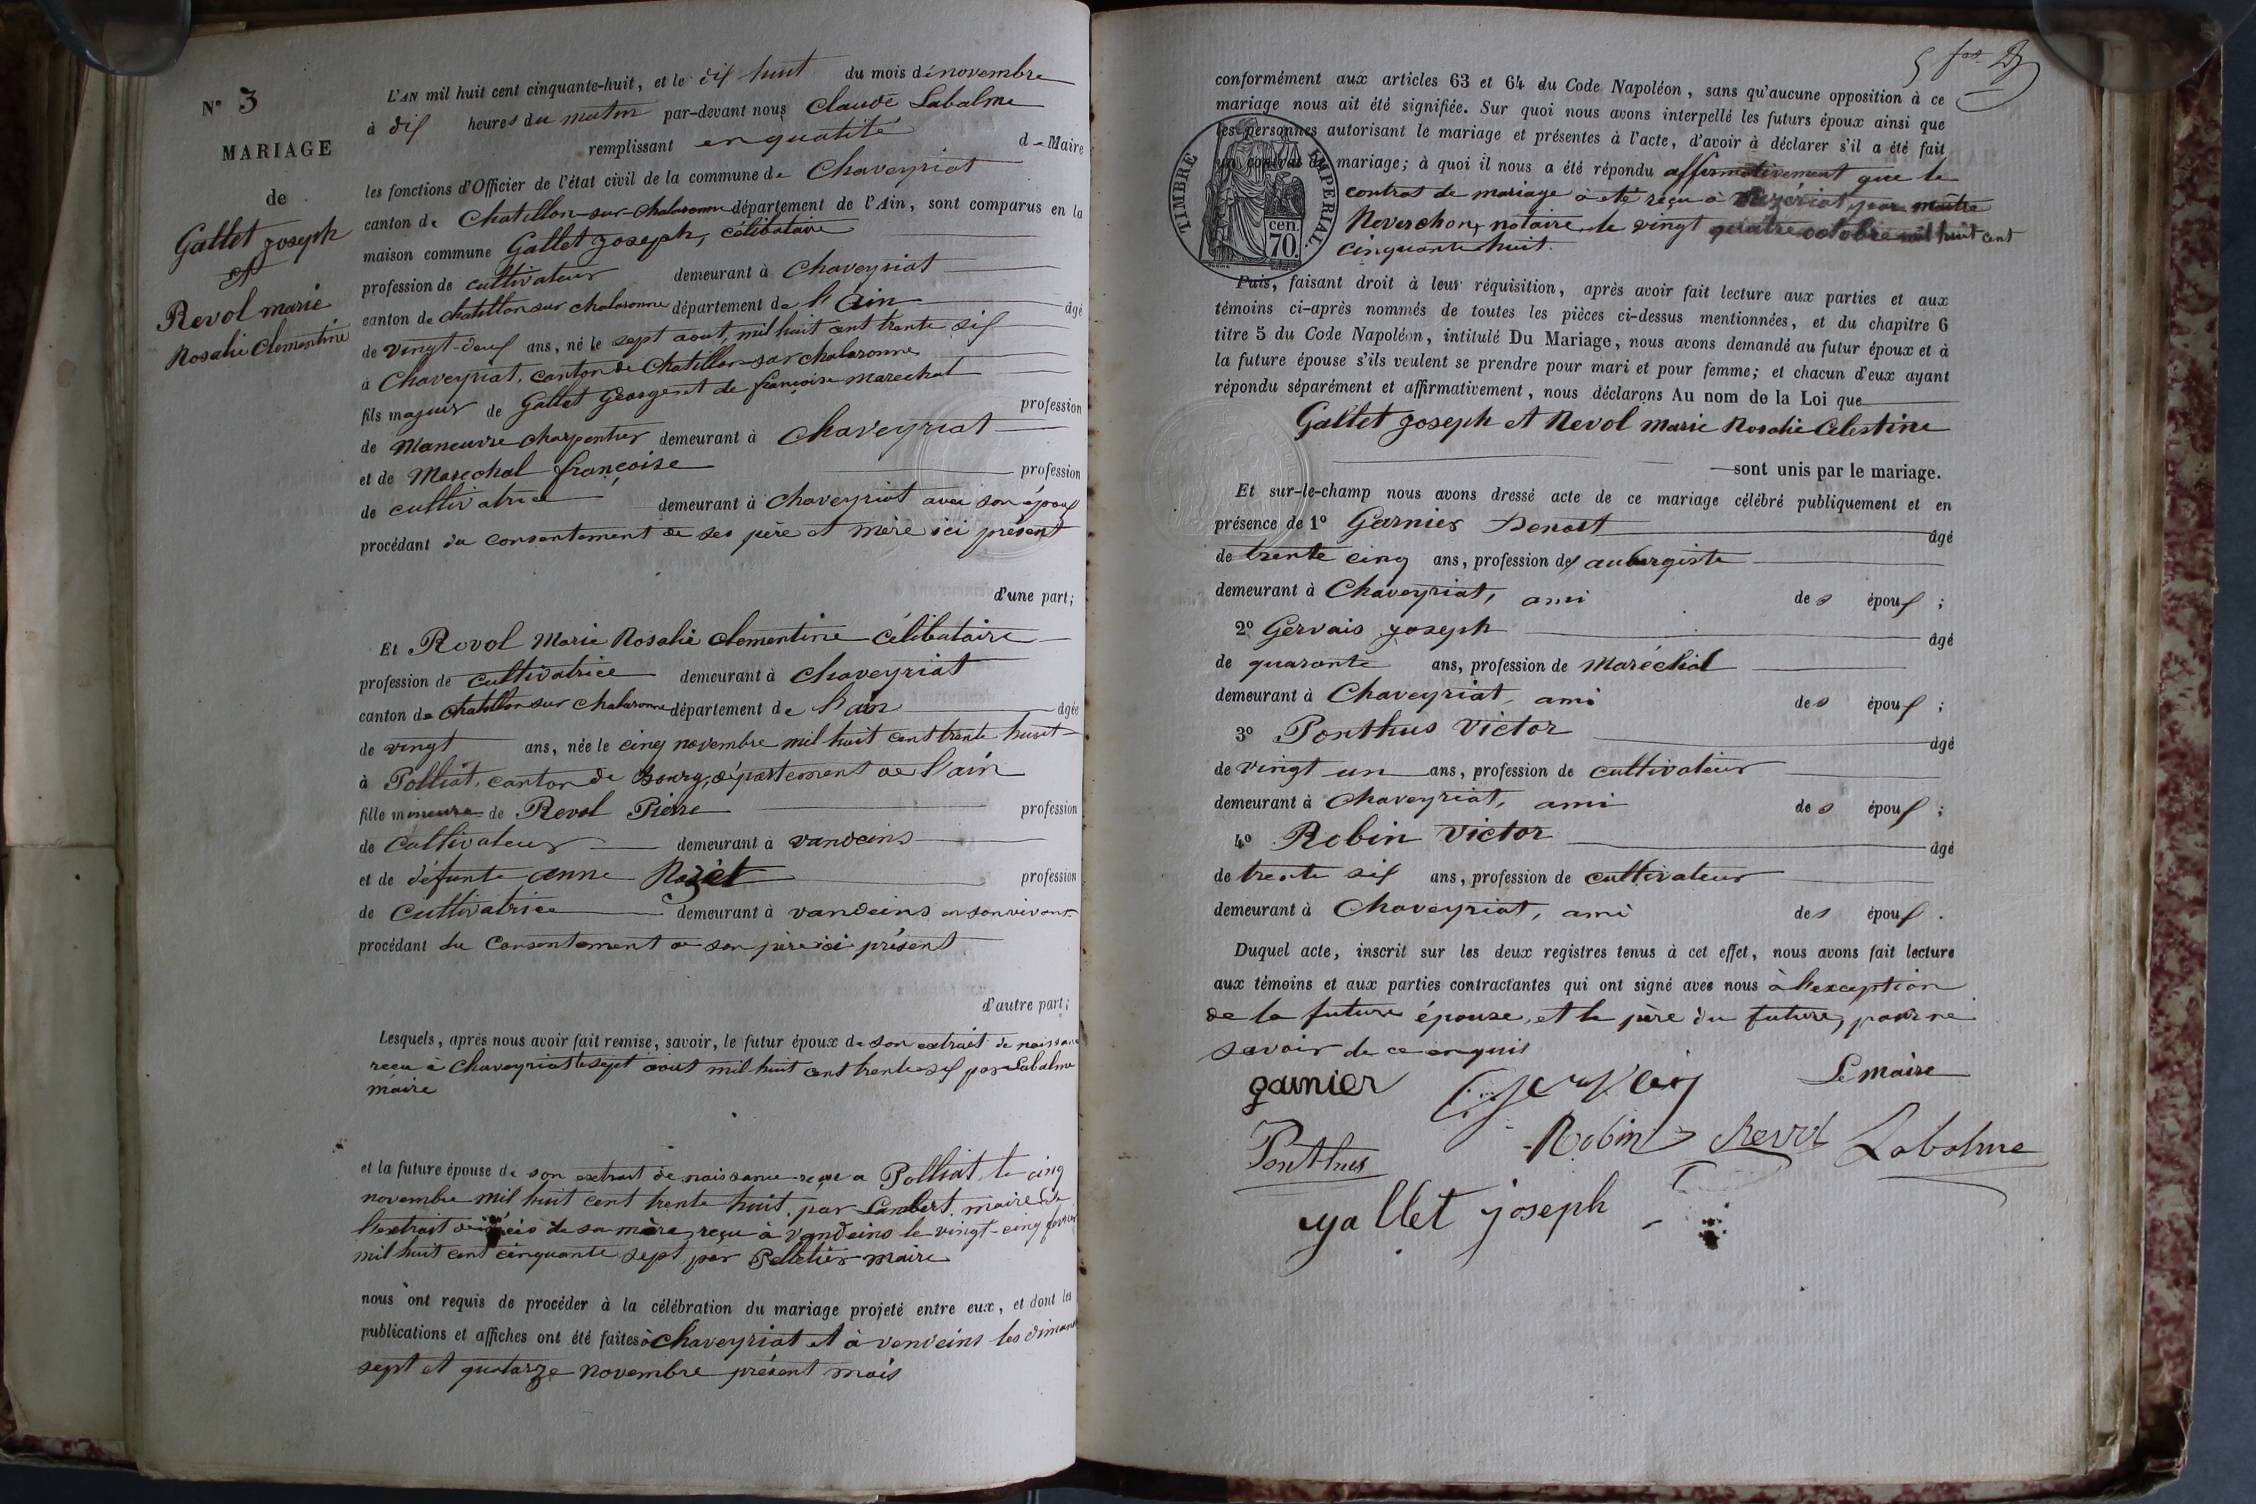 N° 3
MARIAGE
de
Gallet joseph
et
Revol marie
Rosalie Clementine
L'AN mil huit cent cinquante-huit, et le dix huit du mois de novembre
à dix heures du matin par-devant nous Claude Labalme
remplissant en qualité de Maire
les fonctions d'Officier de l'état civil de la commune de Chaveyriat
canton de Chatillon-sur-chalaronne département de l'Ain, sont comparus en la
maison commune Gallet joseph, célibataire
profession de cultivateur demeurant à Chaveyriat
canton de chatillon sur chalaronne département de l'Ain âgé
de vingt-deux ans, né le sept aout, mil huit cent trente six
à Chaveyriat, canton de Chatillon-sur chalaronne
fils majeur de Gallet George et de françoise marechal profession
de Maneuvre charpentier demeurant à Chaveyriat
et de Marechal françoise profession
de cultivatrice demeurant à chaveyriat avec son époux
procédant du consentement de ses père et mère ici présent
d'une part;
Et Revol Marie Rosalie clementine célibataire
profession de cultivatrice demeurant à chaveyriat
canton de chatillon sur chalaronne département de l'ain âgée
de vingt ans, née le cinq novembre mil huit cent trente huit
à Polliat, canton de Bourg, département de l'ain
fille mineure de Revol Pierre profession
de Cultivateur demeurant à vandeins
et de défunte anne profession
de Cultivatrice demeurant à vandeins en son vivant
procédant du Consentement de son père ici présent
d'autre part;
Lesquels, après nous avoir fait remise, savoir, le futur époux de son extrait de naissance
reçu à Chaveyriat le sept aout mil huit cent trente six par Labalme
maire
et la future épouse de son extrait de naissance reçu a Polliat, le cinq
novembre mil huit cent trente huit, par Lambert, maire de
l'extrait de décès de sa mère, reçu à Vandeins le vingt-cinq
mil huit cent cinquante sept par Pelletier maire
nous ont requis de procéder à la célébration du mariage projeté entre eux, et dont les
publications et affiches ont été faites à chaveyriat et à vendeins les dimanche
sept et quatorze novembre présent mois
conformément aux articles 63 et 64 du Code Napoléon, sans qu'aucune opposition à ce
mariage nous ait été signifiée. Sur quoi nous avons interpellé les futurs époux ainsi que
les personnes autorisant le mariage et présentes à l'acte, d'avoir à déclarer s'il a été fait
un contrat de mariage; à quoi il nous a été répondu affirmativement que le
contrat de mariage à été reçu à Mezériat par maitre
notaire, le vingt quatre octobre mil huit cent
cinquante huit.
TIMBRE IMPÉRIAL.
cen.
70.
Puis, faisant droit à leur réquisition, après avoir fait lecture aux parties et aux
témoins ci-après nommés de toutes les pièces ci-dessus mentionnées, et du chapitre 6
titre 5 du Code Napoléon, intitulé Du Mariage, nous avons demandé au futur époux et à
la future épouse s'ils veulent se prendre pour mari et pour femme; et chacun d'eux ayant
répondu séparément et affirmativement, nous déclarons Au nom de la Loi que
Gallet joseph et Revol marie Rosalie Celestine
sont unis par le mariage.
Et sur-le-champ nous avons dressé acte de ce mariage célébré publiquement et en
présence de 1° Garnier Benoit âgé
de trente cinq ans, profession de aubergiste
demeurant à Chaveyriat, ami des époux;
2° Gervais joseph âgé
de quarante ans, profession de Maréchal
demeurant à Chaveyriat, ami des époux;
3° Ponthus Victor âgé
de vingt un ans, profession de cultivateur
demeurant à Chaveyriat, ami des époux;
4° Robin Victor âgé
de trente six ans, profession de cultivateur
demeurant à Chaveyriat, ami des époux.
Duquel acte, inscrit sur les deux registres tenus à cet effet, nous avons fait lecture
aux témoins et aux parties contractantes qui ont signé avec nous à l'exception
de la future épouse, et le père du future, pour ne
savoir de ce enquis
garnier Le maire
Ponthus Robin Revol Labalme
gallet joseph